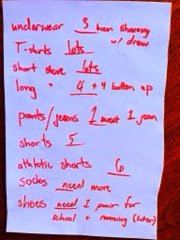 underwear 3 been sharing
w/ drew
T-shirts lots
short sleeve lots
long " 4 + 4 button up
pants/jeans 1 sweat 1 jean
shorts 5
athletic shorts 6
socks need more
shoes need 1 pair for
school + running (later)